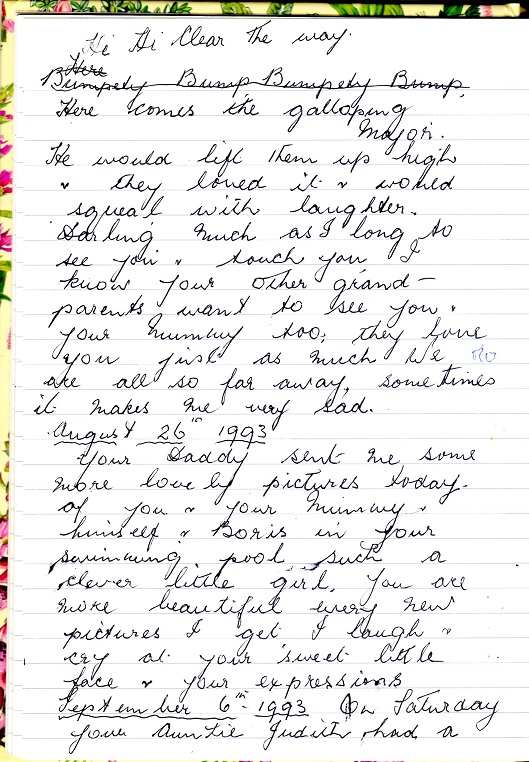 Hi Hi Clear the way.
Here
Bumpety Bump Bumpety Bump,
Here comes the galloping
Major.
He would lift them up high
& they loved it & would
squeal with laughter.
Darling much as I long to
see you & touch you I
know your other grand-
parents want to see you &
your Mummy too, they love
you just as much We do
are all so far away, sometimes
it makes me very sad.
August 26th 1993
Your Daddy sent me some
more lovely pictures today.
of you & your Mummy &
himself & Boris in your
swimming pool, such a
clever little girl. You are
more beautiful every new
pictures I get I laugh &
cry at your sweet little
face & your expressions
September 6th 1993 On Saturday
your Auntie Judith had a